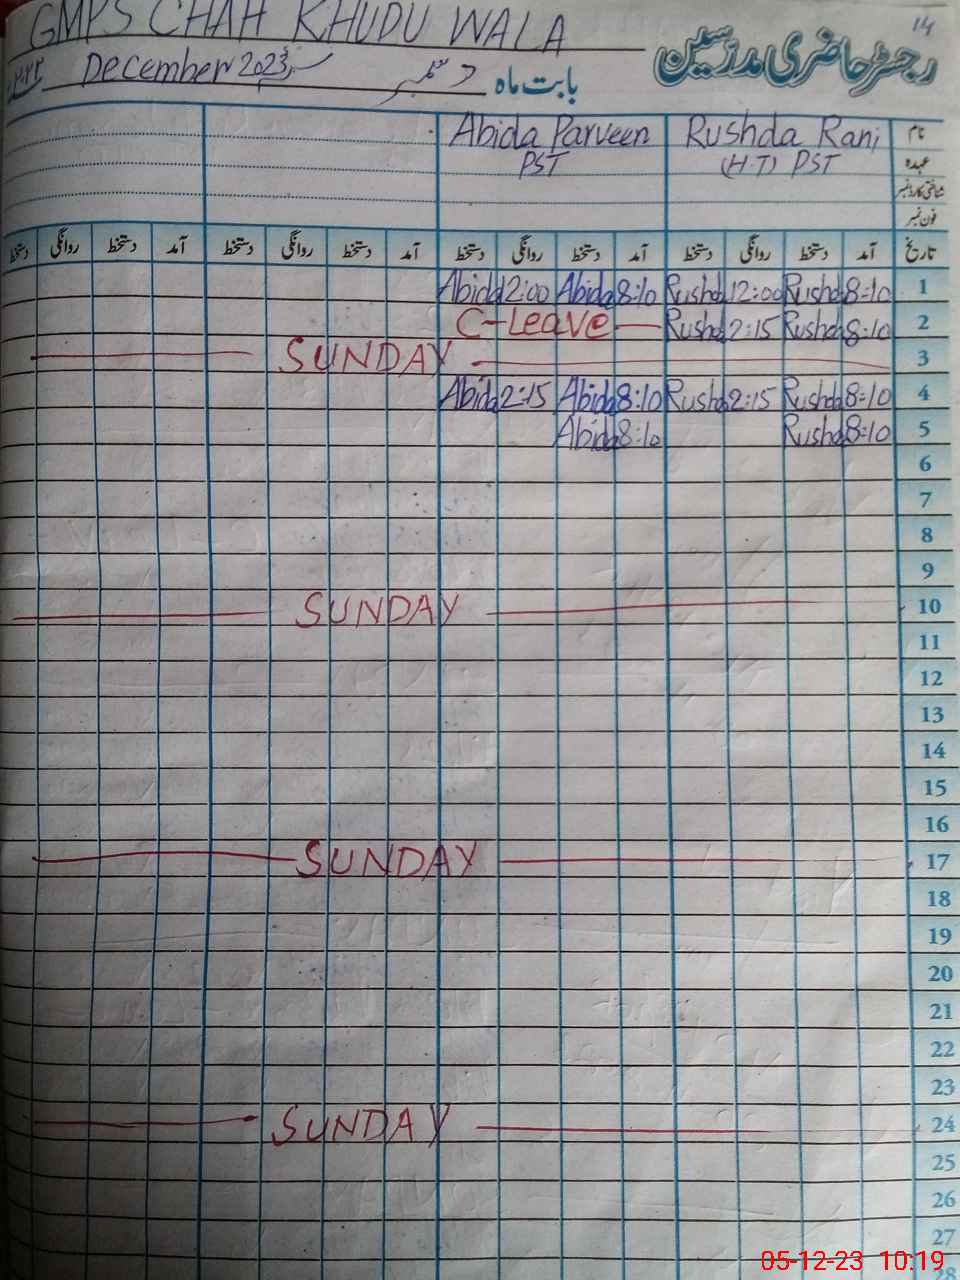 14
GMPS CHAH KHUDU WALA
رجسٹر حاضری مدرسین
بابت ماہ دسمبر December 2023
نام Rushda Rani Abida Parveen
عہدہ (H.T) PST PST
شناختی کارڈ نمبر
فون نمبر
تاریخ آمد دستخط روانگی دستخط آمد دستخط روانگی دستخط آمد دستخط روانگی دستخط آمد دستخط روانگی دستخط
1 8:10 Rushda 12:00 Rushda 8:10 Abida 12:00 Abida
2 8:10 Rushda 2:15 Rushda C-Leave
3 SUNDAY
4 8:10 Rushda 2:15 Rushda 8:10 Abida 2:15 Abida
5 8:10 Rushda 8:10 Abida
6
7
8
9
10 SUNDAY
11
12
13
14
15
16
17 SUNDAY
18
19
20
21
22
23
24 SUNDAY
25
26
27
28
05-12-23 10:19